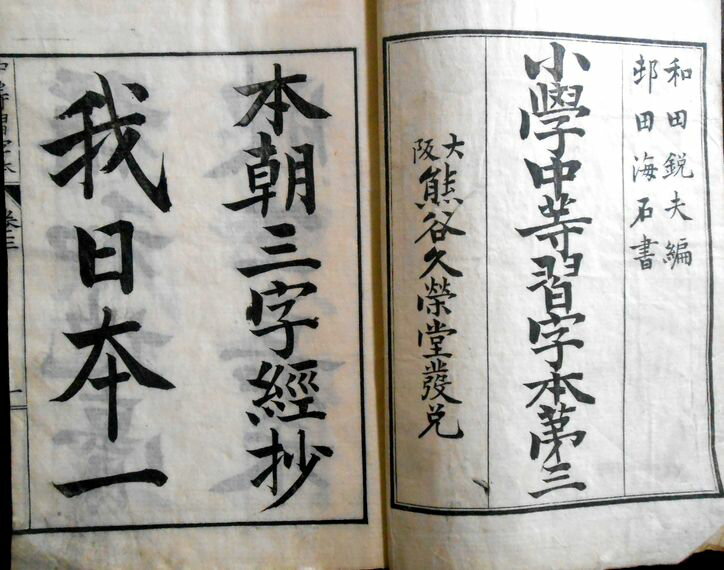 和田鋭夫編
邨田海石書
小學中等習字本第三
大阪
熊谷久榮堂發兌
本朝三字經抄
我日本一
中等習字本
卷三